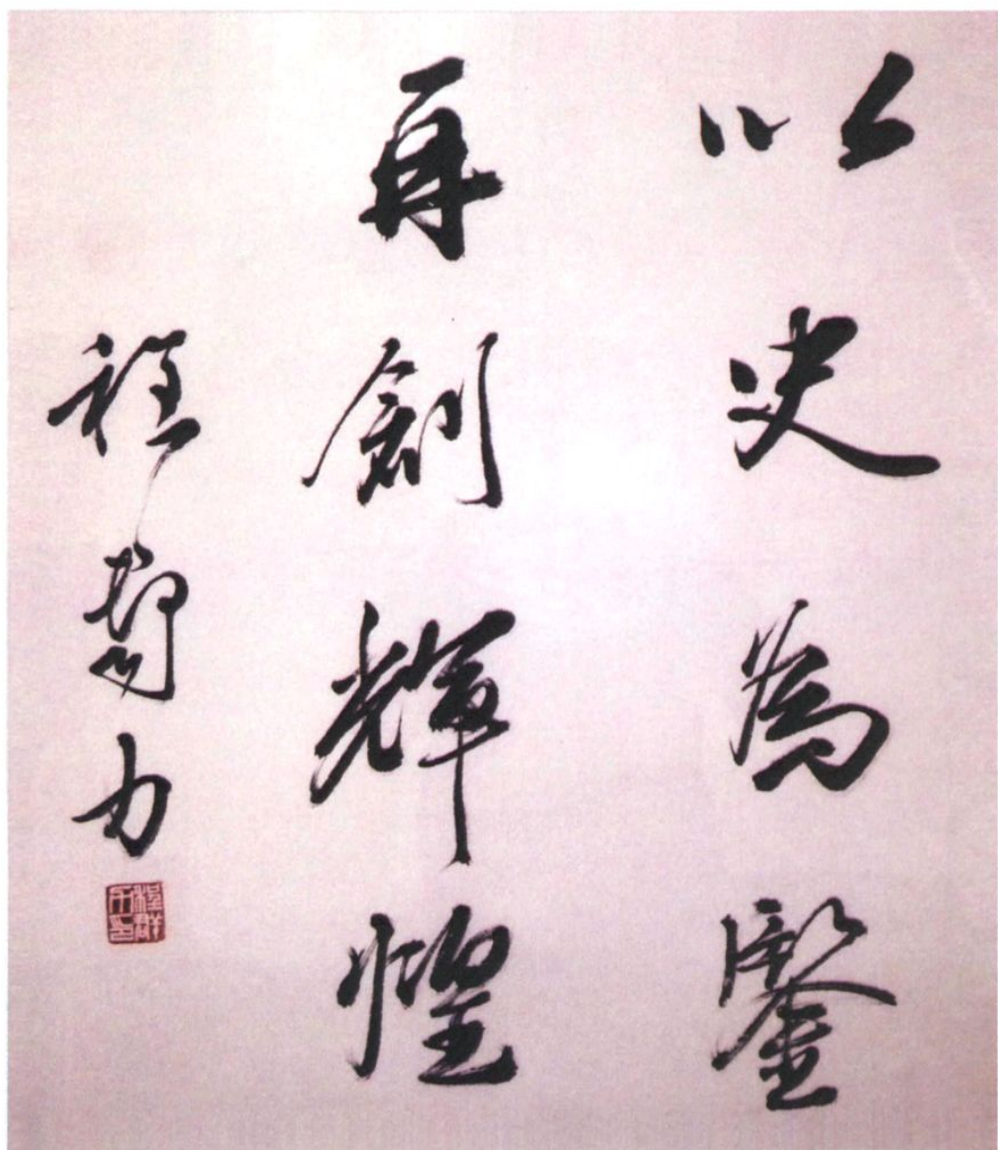 以史為鑒
再創輝煌
程群力
程群力印